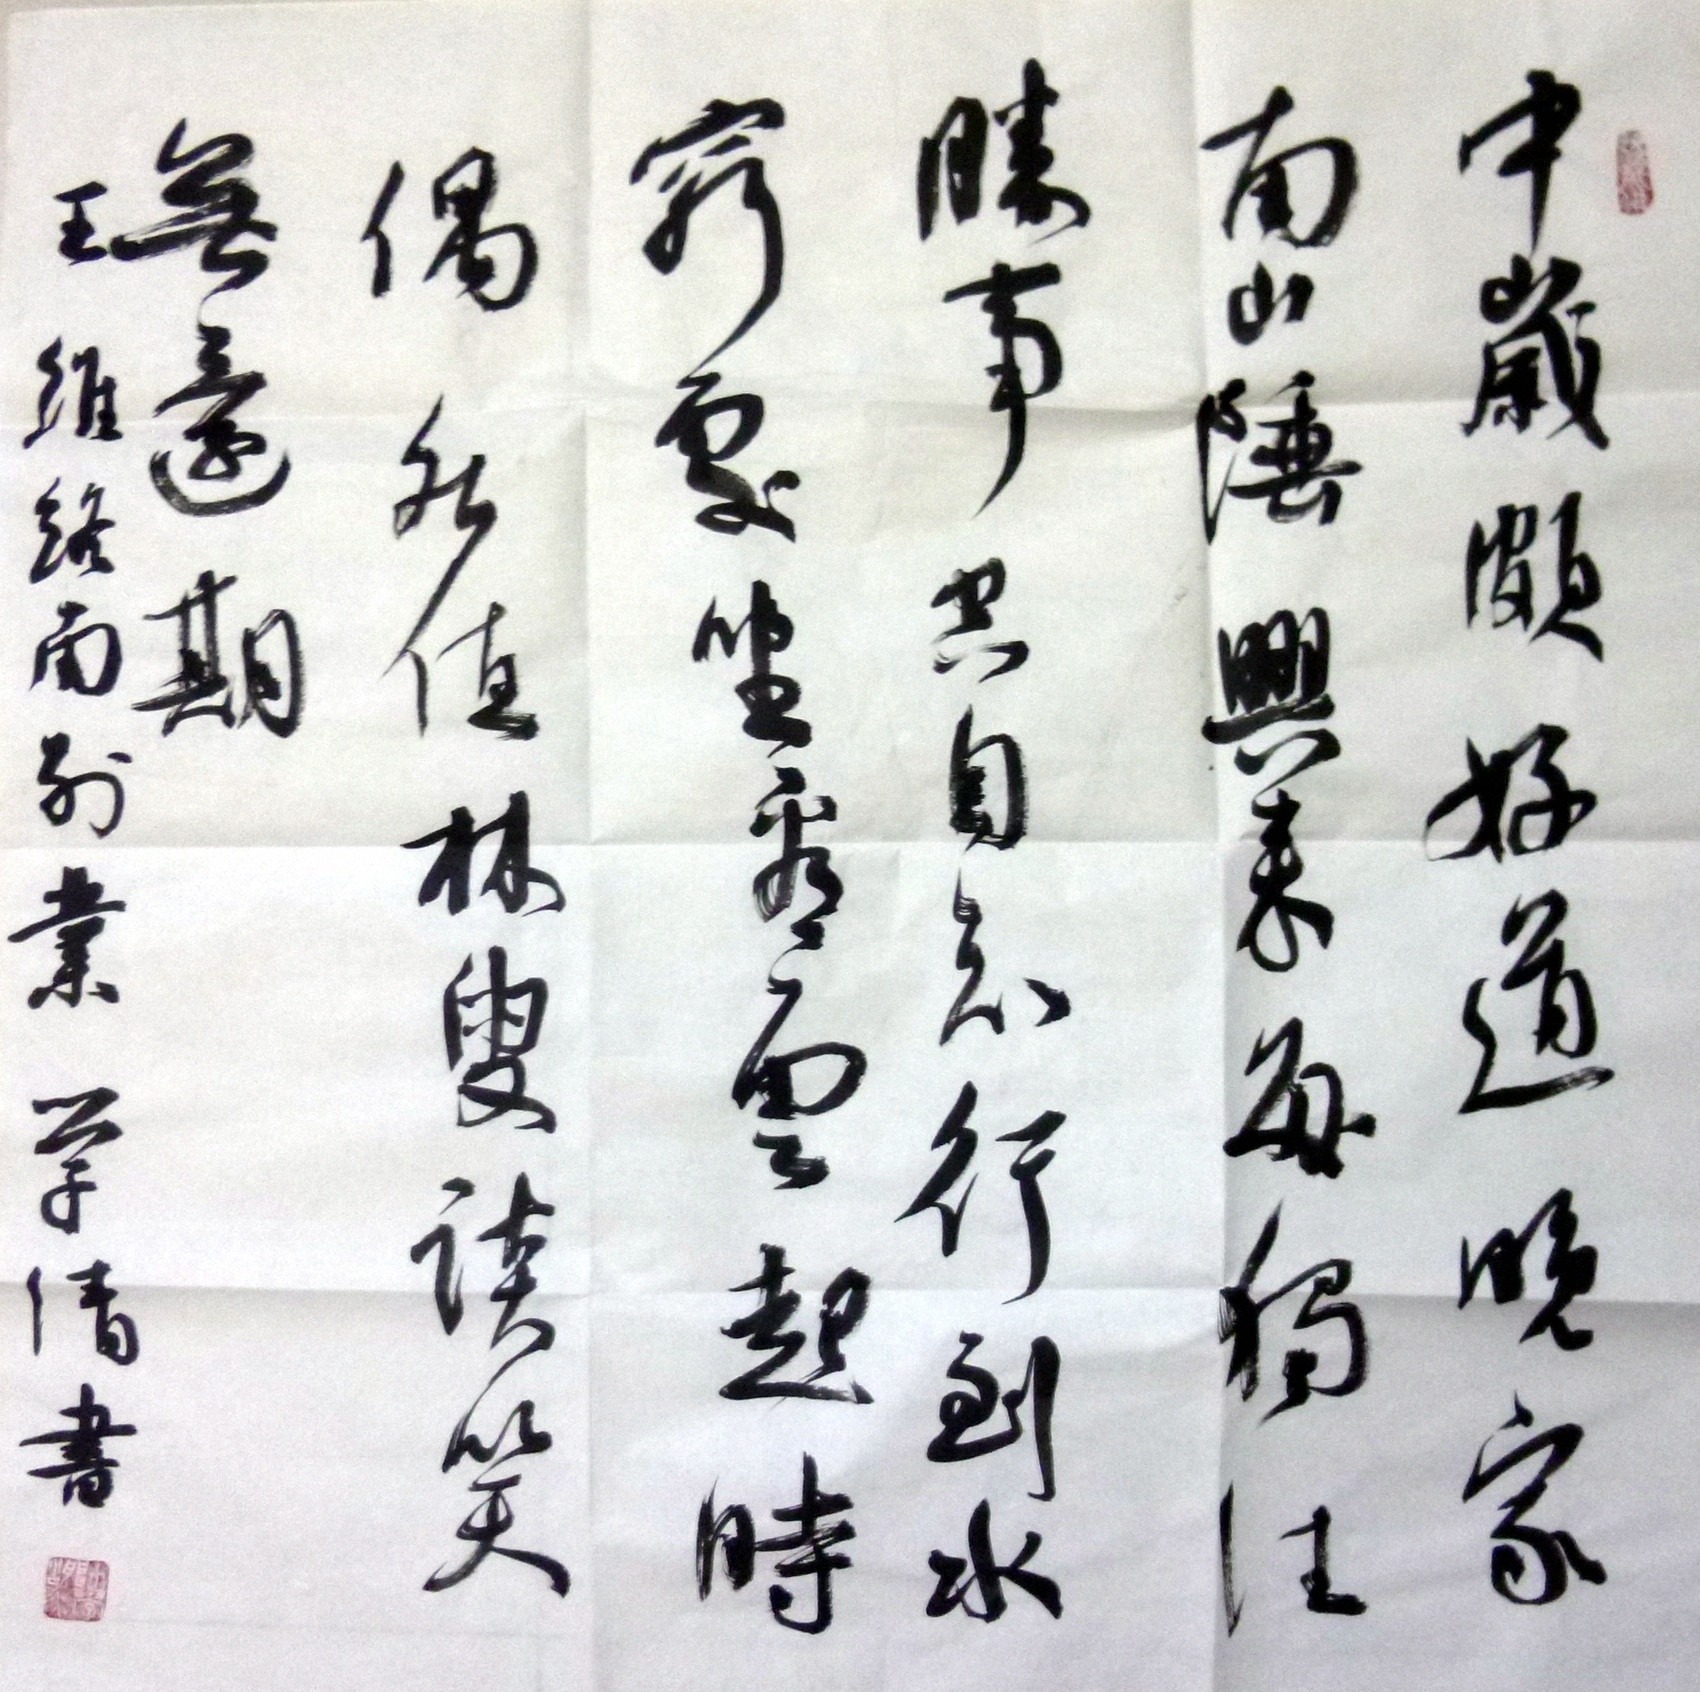 中歲頗好道晚家
南山陲興來每獨往
勝事空自知行到水
窮處坐看雲起時
偶然值林叟談笑
無還期
王維終南別業 學清書